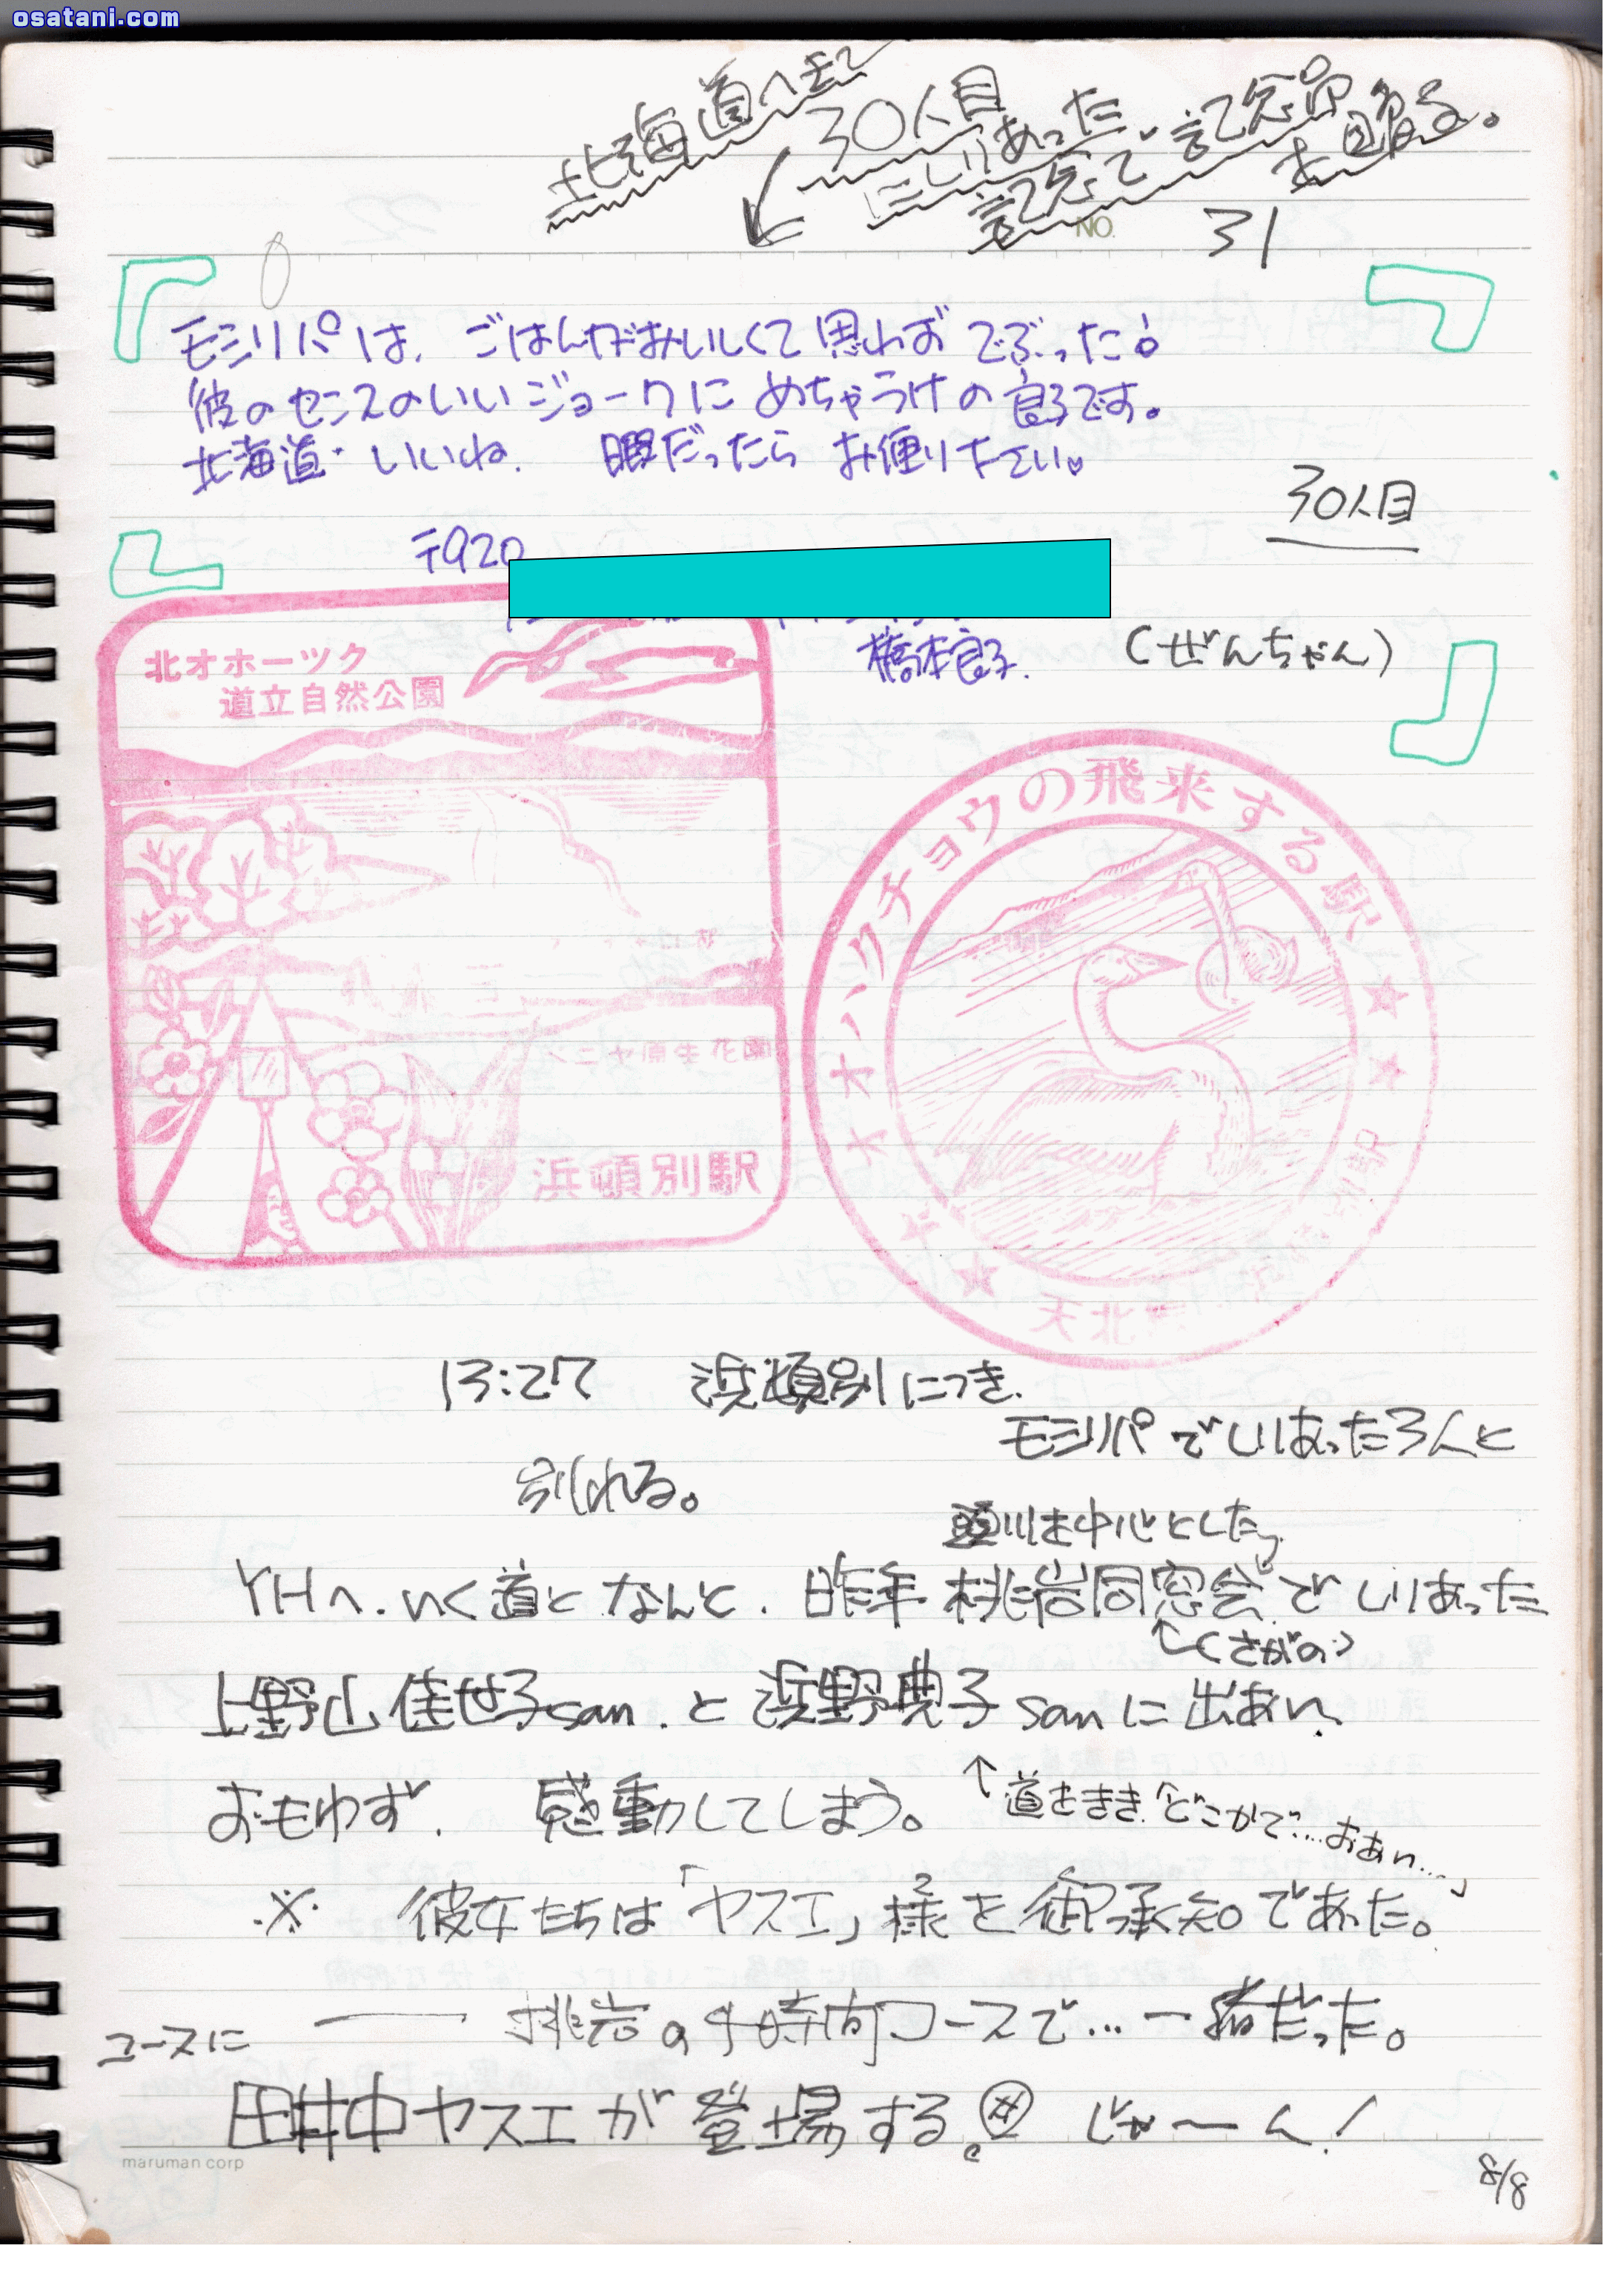 osatani.com
北海道へきて
30人目
にしりあった、
記念で 記念品
を 贈る。
NO.
31
モシリパは、ごはんがおいしくて思わず でぶった!
彼のセンスのいいジョークに めちゃうけの 良子です。
北海道・いいね. 暇だったら お便り下さい。
30人目
〒920
橋本良子.
(ぜんちゃん)
北オホーツク
道立自然公園
ベニヤ原生花園
浜頓別駅
オオハクチョウの飛来する駅
天北
13:27 浜頓別につき.
モシリパでしりあった3人と
別れる。
頭川を中心とした
YHへ.いく道となんと.昨年 桃岩同窓会でしりあった
(さがの)
上野山佳世子san.と浜野典子sanに出あい、
おもわず. 感動してしまう。
↑道をきき.「どこかで…おあい…」
※ 彼女たちは「ヤスエ」様を御承知であった。
桃岩の4時間コースで…一緒だった。
ユースに
田井中ヤスエが登場する。 じゃーん!
maruman corp
8/8